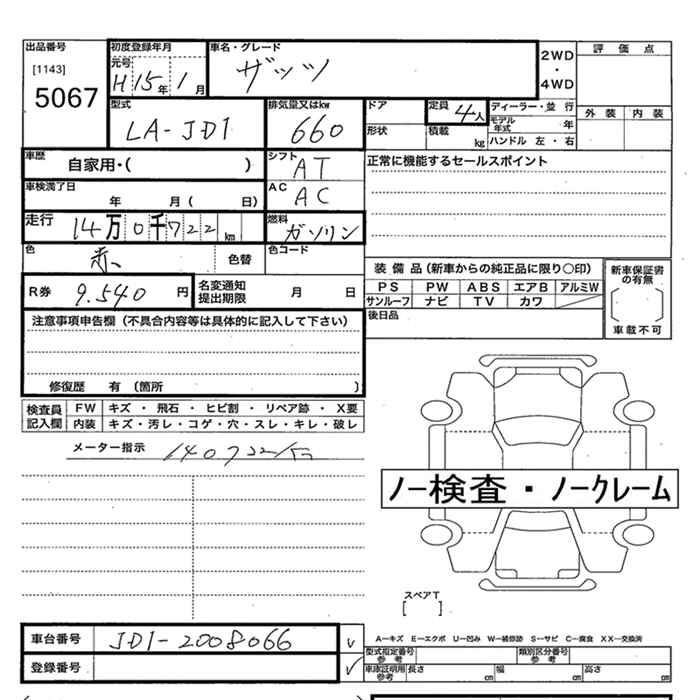 出品番号 初度登録年月 車名・グレード 2WD・4WD 評価点
[1143] 元号 H 15年 1月 ザッツ
5067
型式 排気量又はkw ドア 定員 4人 ディーラー・並行 外装 内装
LA-JD1 660 形状 積載 kg モデル年式 年
ハンドル 左・右
車歴 自家用・( ) シフト AT 正常に機能するセールスポイント
車検満了日 年 月( 日) AC AC
走行 14万0千722km 燃料 ガソリン
色 赤 色替 色コード
装備品(新車からの純正品に限り○印) 新車保証書の有無
R券 9.540円 名変通知提出期限 月 日 PS PW ABS エアB アルミW
サンルーフ ナビ TV カワ [ ]
注意事項申告欄(不具合内容等は具体的に記入して下さい) 後日品 車載不可
修復歴 有 (箇所 )
検査員記入欄 FW キズ・飛石・ヒビ割・リペア跡・X要
内装 キズ・汚レ・コゲ・穴・スレ・キレ・破レ
メーター指示 140722
ノー検査・ノークレーム
スペアT
[ ]
車台番号 JD1-2008066 A―キズ E―エクボ U―凹み W―補修跡 S―サビ C―腐食 XX―交換済
登録番号 型式指定番号 参考 類別区分番号 参考
車庫証明用 参考 長さ cm 幅 cm 高さ cm